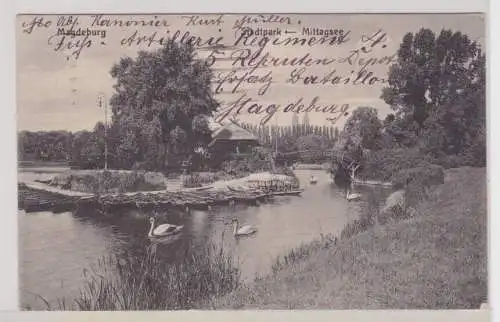 Abs. Kanonier Kurt Müller
Magdeburg Stadtpark — Mittagsee
Fuss- Artillerie Regiment 4.
5 Rekruten Depot
Ersatz Bataillon
Magdeburg